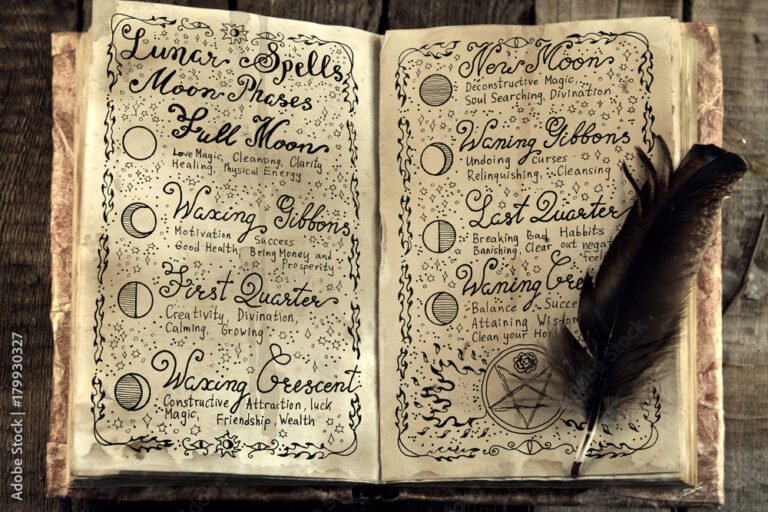 Lunar Spells
Moon Phases
Full Moon
Love Magic, Cleansing, Clarity
Healing, Physical Energy
Waxing Gibbons
Motivation Success
Good Health, Bring Money and
Prosperity
First Quarter
Creativity, Divination,
Calming, Growing
Waxing Crescent
Constructive Attraction, luck
Magic, Friendship, Wealth
New Moon
Deconstructive Magic,
Soul Searching, Divination
Waning Gibbons
Undoing curses
Relinquishing, Cleansing
Last Quarter
Breaking Bad Habbits
Banishing, Clear out negat
feel
Waning Cre
Balance Succe
Attaining Wisdom
Clean your Ho
Adobe Stock | #179930327